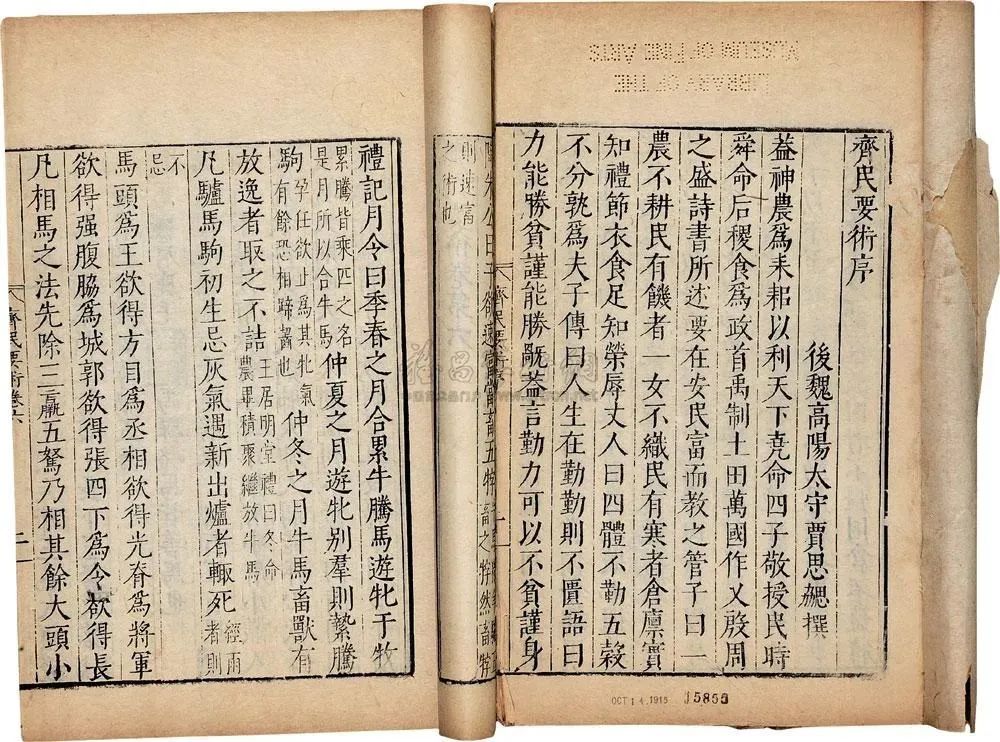 齊民要術序
後魏高陽太守賈思勰撰
葢神農爲耒耜以利天下堯命四子敬授民時
舜命后稷食爲政首禹制土田萬國作乂殷周
之盛詩書所述要在安民富而教之管子曰一
農不耕民有饑者一女不織民有寒者倉廪實
知禮節衣食足知榮辱丈人曰四體不勤五穀
不分孰爲夫子傳曰人生在勤勤則不匱語曰
力能勝貧謹能勝厩葢言勤力可以不貧謹身
齊民要術序
一
則速富
之術也
禮記月令曰季春之月合累牛騰馬遊牝于牧
累騰皆乘匹之名
是月所以合牛馬
仲夏之月遊牝别羣則縶騰
駒
孕任欲止爲其牝氣
有餘恐相蹄齧也
仲冬之月牛馬畜獸有
放逸者取之不詰
王居明堂禮曰冬命
農畢積聚繼放牛馬
凡驢馬駒初生忌灰氣遇新出爐者輙死
經雨
者則
不
忌
馬頭爲王欲得方目爲丞相欲得光脊爲將軍
欲得强腹脇爲城郭欲得張四下爲令欲得長
凡相馬之法先除三羸五駑乃相其餘大頭小
齊民要術卷六
LIBRARY OF THE
MUSEUM OF FINE ARTS
OCT 14 1915
15855